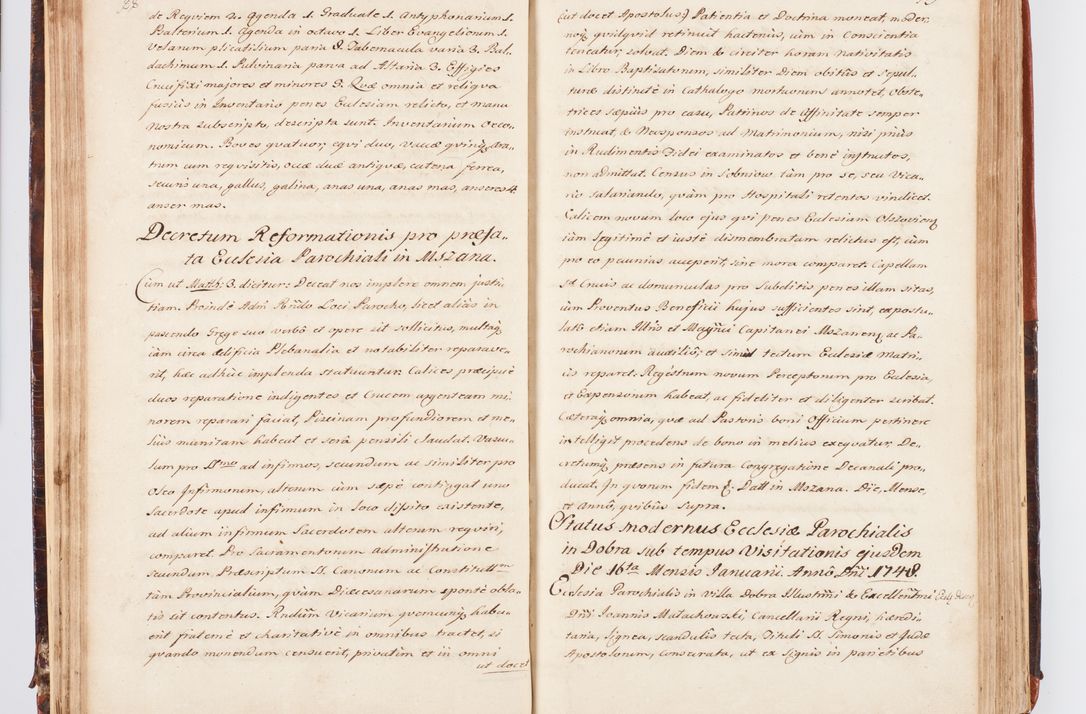 de Requiem 2. Agenda 1. Graduale 1. Antyphonarium 1.
Psalterium 1. Agenda in octavo 1. Liber Evangeliorum 1.
Velarum plicatilium paria 8. Tabernacula varia 3. Bal-
dachinum 1. Pulvinaria parva ad Altaria 3. Effigies
Crucifixi majores et minores 3. Quæ omnia et reliqua
fusius in Inventario penes Ecclesiam relicto, et manu
Nostra subscripto, descripta sunt. Inventarium Oeco-
nomicum. Boves quatuor, equi duo, vaccæ quinq, Ara-
trum cum requisitis, ocæ duæ antiquæ, catena ferrea,
securis una, gallus, galina, anas una, anas mas, anseres 4
anser mas.
Decretum Reformationis pro præfa-
ta Ecclesia Parochiali in Mszana.
Cum ut Math: 3. dicitur: Deceat nos implere omnem justi-
tiam. Proinde Adm Rndo Loci Parocho, licet alias in
pascendo Grege suo verbo et opere sit sollicitus, multaq
jam circa ædificia Plebanalia et notabiliter reparave-
rit, hæc adhuc implenda statuuntur. Calices præcipuè
duos reparatione indigentes et Crucem argenteam mi-
norem reparari faciat, Piscinam profundiorem et me-
lius munitam habeat et serâ pensili claudat. Vascu-
lum pro SSmo ad infirmos, secundum ac similiter pro
Oleo Infirmorum, alterum cùm sæpè contingat uno
Sacerdote apud infirmum in loco dissito existente,
ad alium infirmum Sacerdotem alterum requiri,
comparet. Pro Sacramentorum administratione
secundum Præscriptum SS. Canonum ac Constitutnm
tàm Provincialium, quàm Diæcesanarum spontè obla-
tis sit contentus. Rndum Vicarium quemcunq habu-
erit fraternè et charitativè in omnibus tractet, si
quando monendum censuerit, privatim et in omni
ut docet
(ut docet Apostolus) Patientia et Doctrina moneat, moder-
noq quidquid retinuit hactenus, cum in Conscientia
teneatur, solvat. Diem & circiter horam nativitatis
in Libro Baptisatorum, similiter Diem obitus et sepul-
turæ distinctè in Cathalogo mortuorum annotet, Obste-
trices sæpiùs pro casu, Patrinos de Affinitate semper
instruat, & Neosponsos ad Matrimonium, nisi priùs
in Rudimentis Fidei examinatos et benè instructos,
non admittat. Census in Lobniow tàm pro se, seu Vica-
rio salariando, quàm pro Hospitali retentos vindicet.
Calicem novum loco ejus qui penes Ecclesiam Olszovien
jam legitimè et justè dismembratam relictus est, cùm
pro eo pecunias acceperit, sine mora comparet. Capellam
S Crucis ac domunculas pro Subditis penes illam sitas,
cùm Proventus Beneficii hujus sufficientes sint, exposta-
lato etiam Illris et Magnci Capitanei Mszanen ac Pa-
rochianorum auxiliô, et simul tectum Ecclesiæ Matri-
cis reparet. Regestrum novum Perceptorum pro Ecclesia,
et Expensorum habeat, ac fideliter et diligenter scribat.
Cæteraq omnia, quæ ad Pastoris boni Officium pertinere
intelligit procedens de bono in melius exequatur, De-
cretumq præsens in futura Congregatione Decanali pro-
ducat. In quorum fidem &. Datt in Mszana. Die, Mense,
et Annô, quibus supra.
Status modernus Ecclesiæ Parochialis
in Dobra sub tempus Visitationis ejusdem
Die 16ta Mensis Januarii. Annô Dni 1748.
Ecclesia Parochialis in villa Dobra Illustrmi & Excellentmi
Dni Joannis Małachowski, Cancellarii Regni, hæredi-
taria, lignea, scandulis tecta, Tituli SS. Simonis et Judæ
Apostolorum, Consecrata, ut ex Signis in parietibus